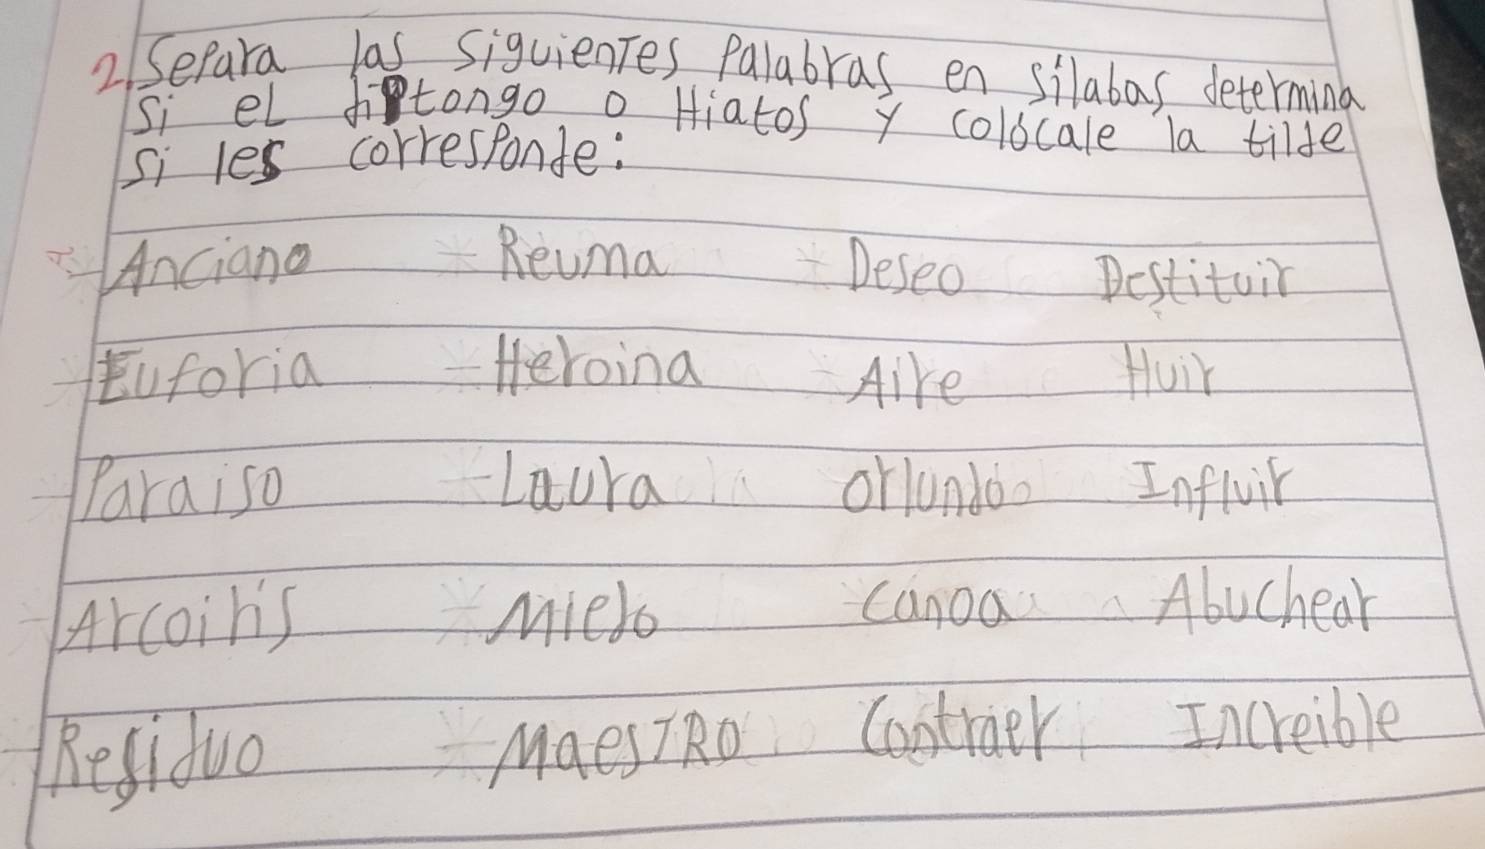 2. Separa las siguientes Palabras en sílabas determina
si el diptongo o Hiatos y colócale la tilde
si les corresponde:
- Anciano - Reuma - Deseo Destituir
- Euforia - Heroina - Aire Huir
- Paraiso - Laura orlundo Influir
- Arcoiris - Miedo - canoa Abuchear
- Residuo - MaesTRO Contraer Increible